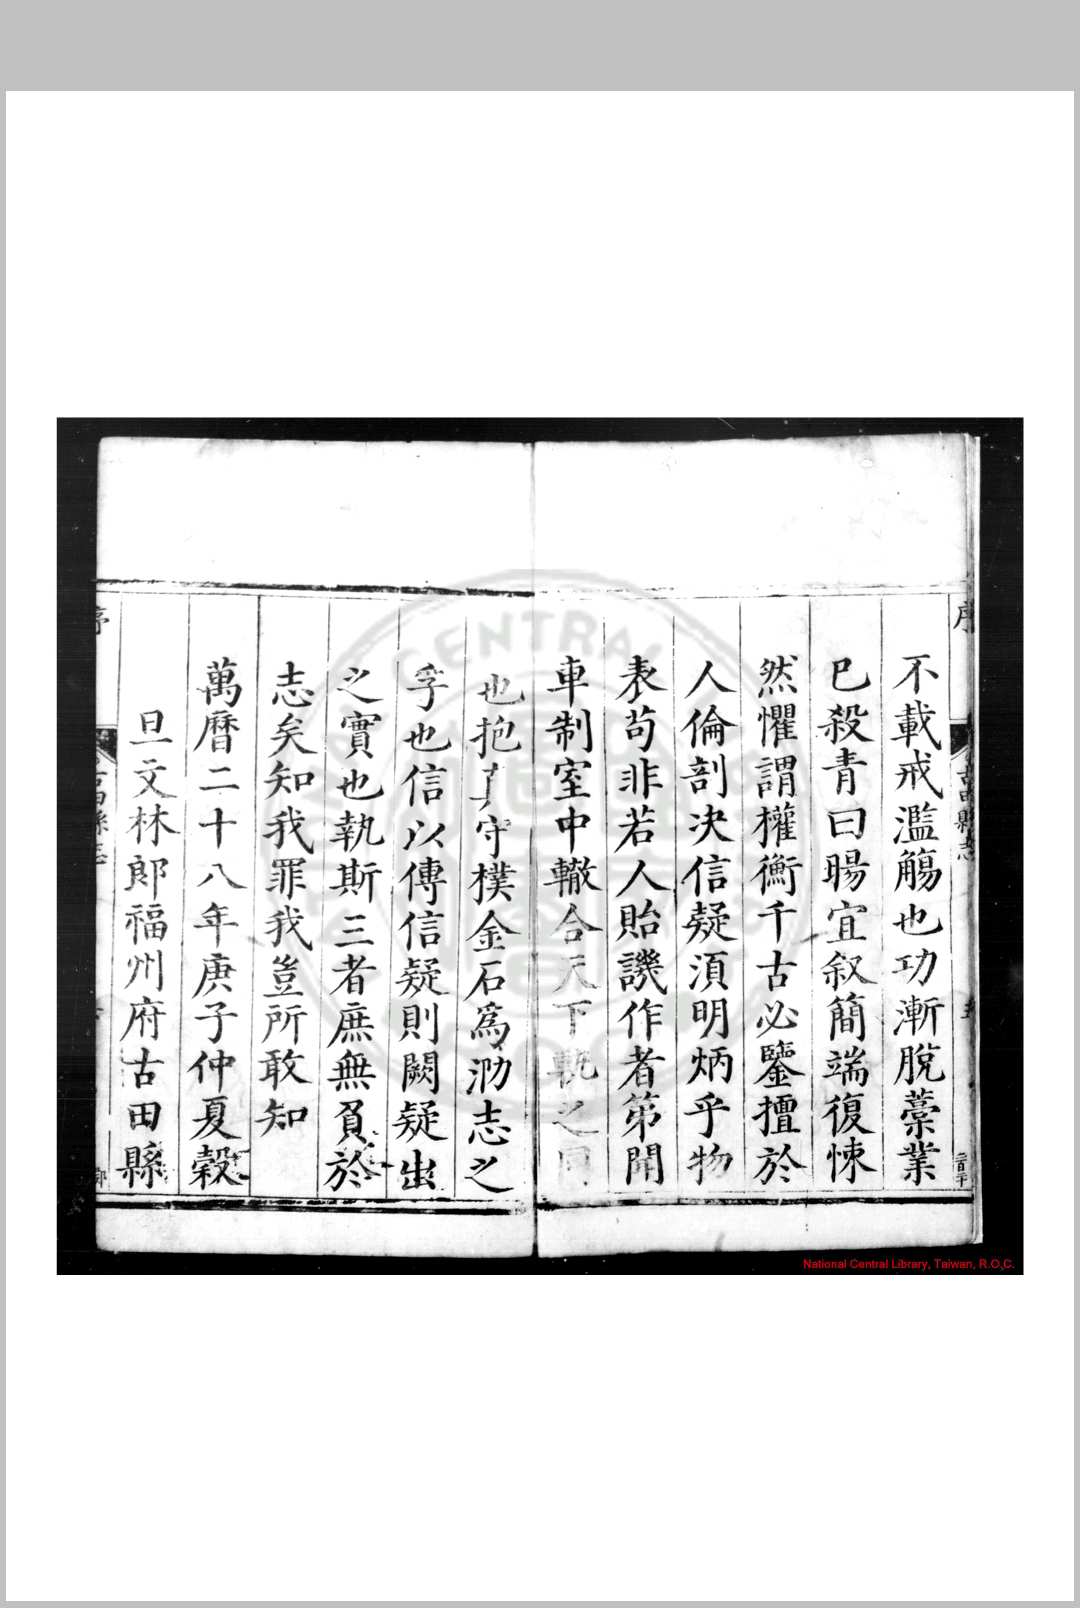 不載戒濫觴也功漸脫藁業
已殺青曰暘宜叙簡端復悚
然懼謂權衡千古必鑒擅於
人倫剖决信疑須明炳乎物
表苟非若人貽譏作者第開
車制室中轍合天下軌之同
也抱守樸金石爲泐志之
孚也信以傳信疑則闕疑出
之實也執斯三者庶無負於
志矣知我罪我豈所敢知
萬曆二十八年庚子仲夏穀
旦文林郎福州府古田縣
序
古田縣志
序
古田縣志
NATIONAL CENTRAL LIBRARY
National Central Library, Taiwan, R.O.C.